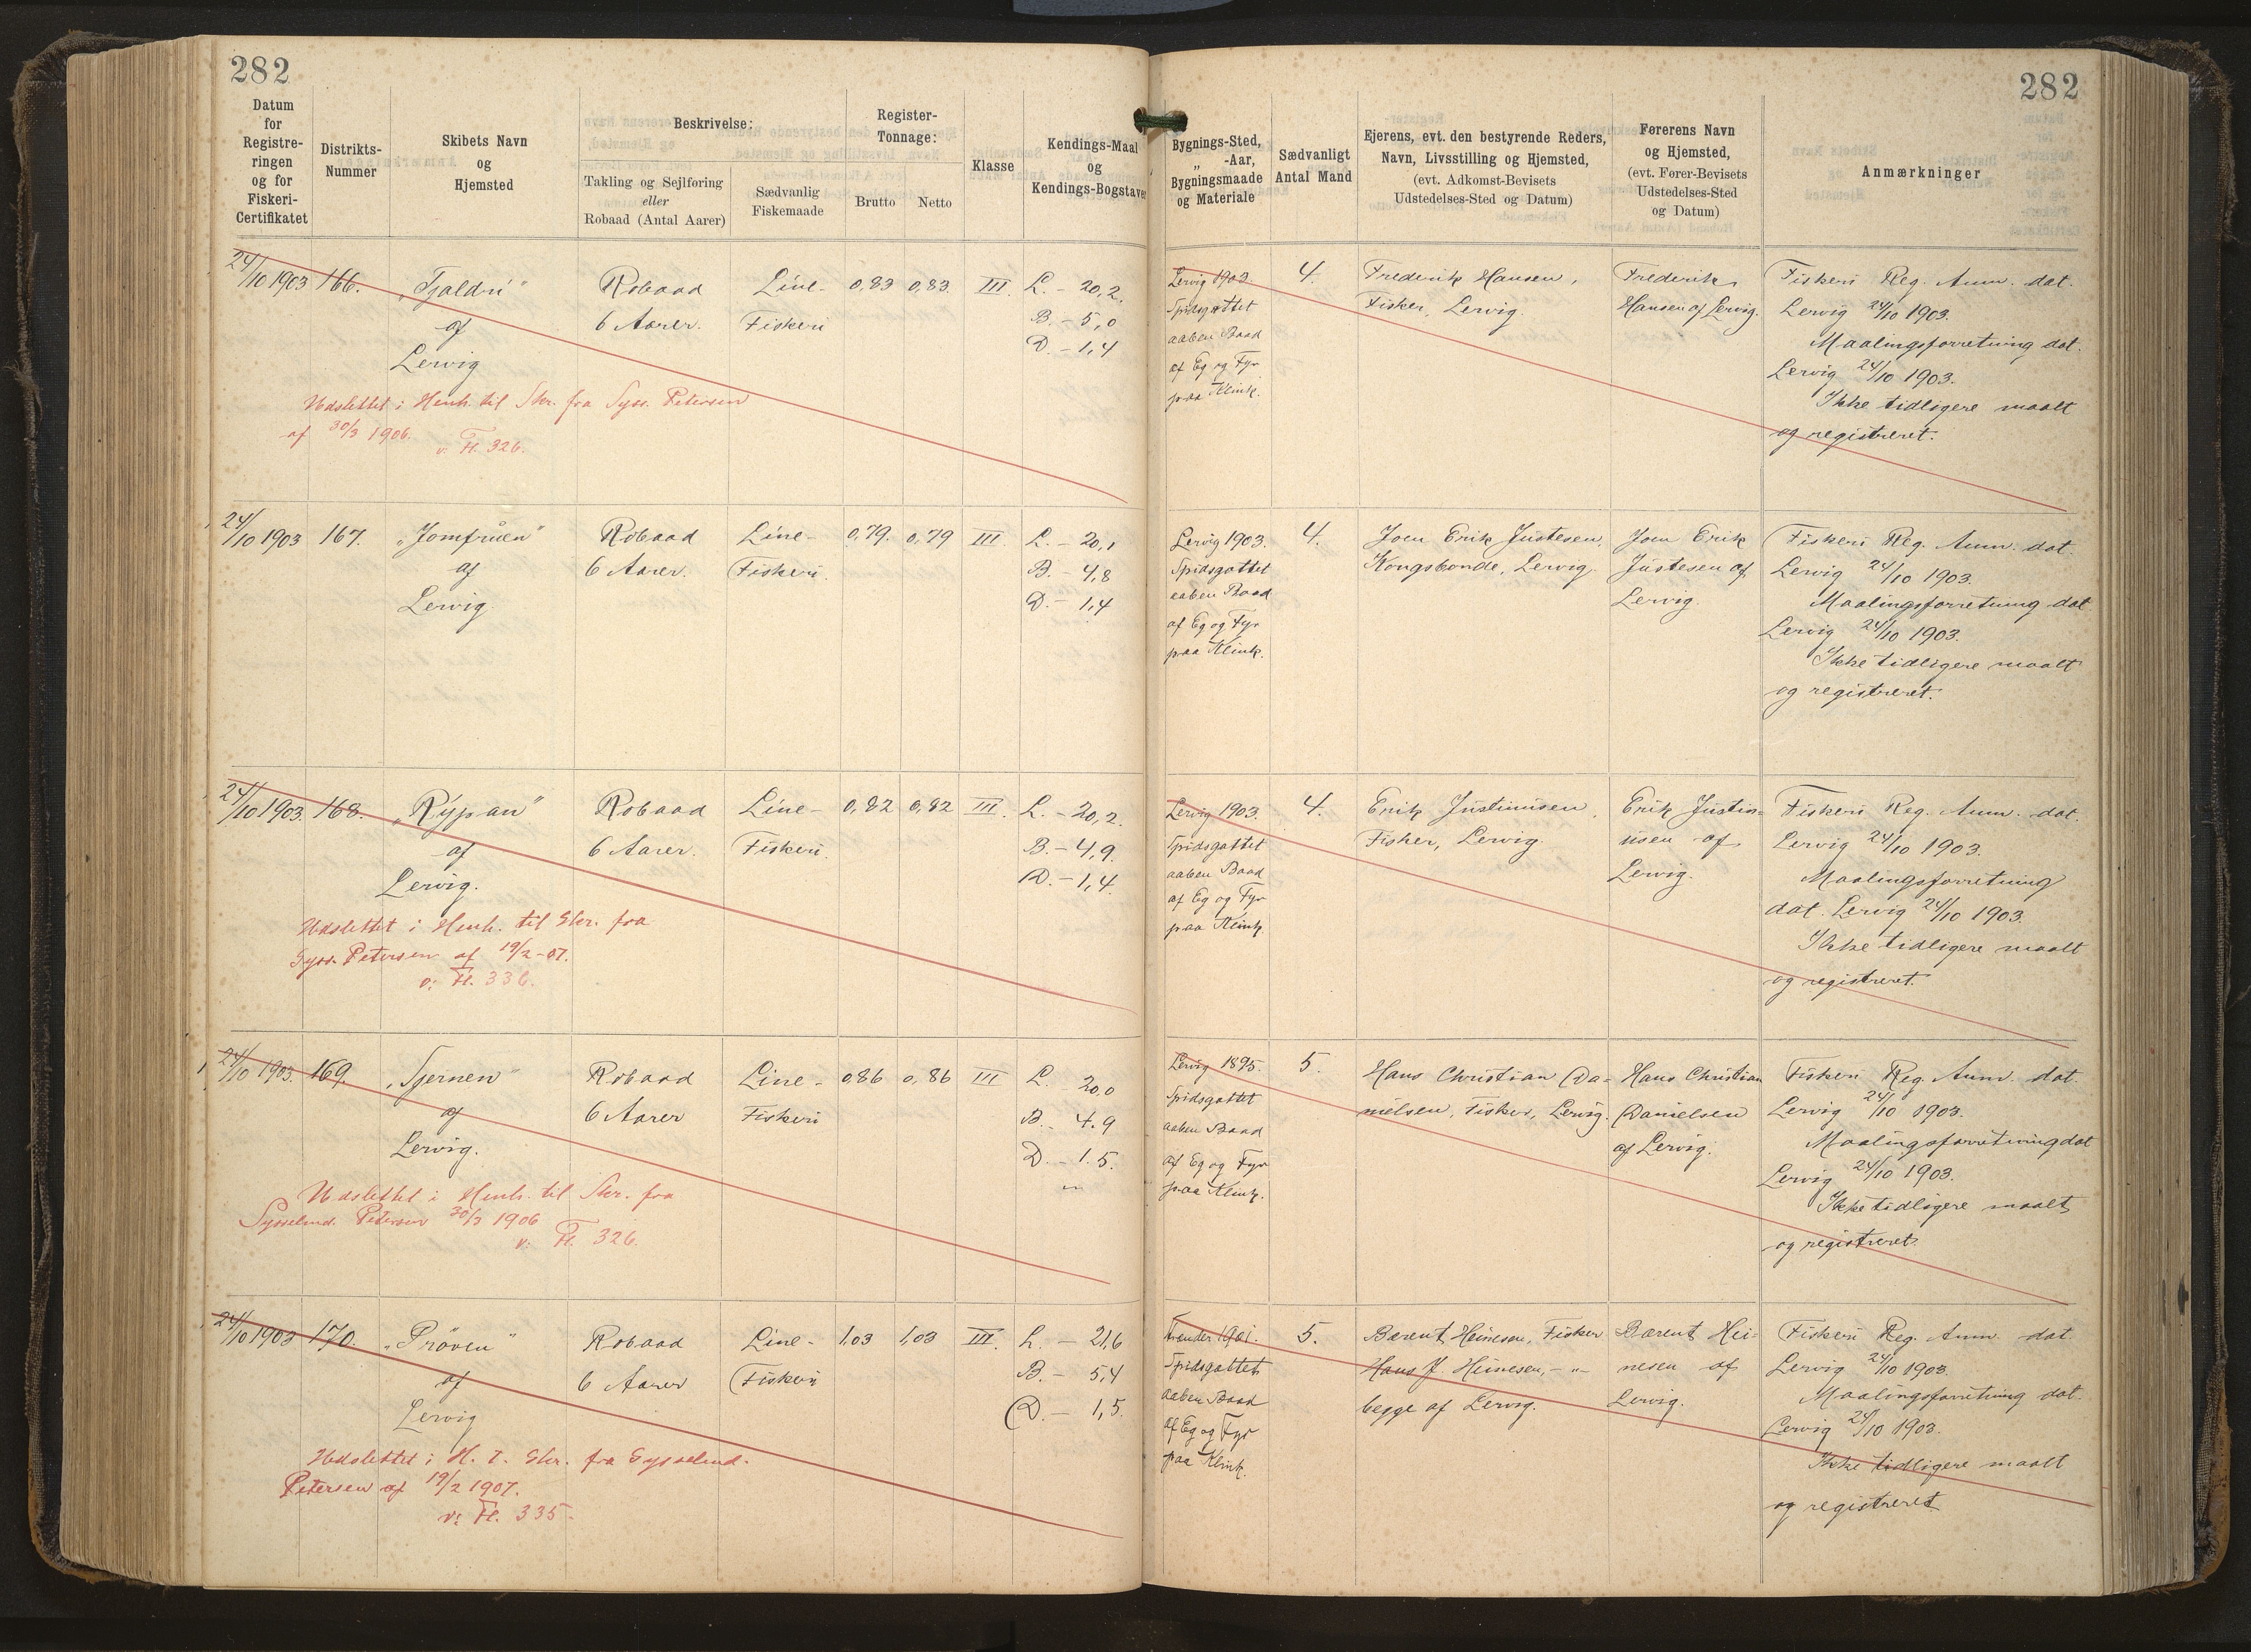 282
282
Datum
for
Registre-
ringen
og for
Fiskeri-
Certifikatet
Distrikts-
Nummer
Skibets Navn
og
Hjemsted
Beskrivelse:
Takling og Sejlføring
eller
Robaad (Antal Aarer)
Sædvanlig
Fiskemaade
Register-
Tonnage:
Brutto
Netto
Klasse
Kendings-Maal
og
Kendings-Bogstaver
Bygnings-Sted,
„ -Aar,
Bygningsmaade
og Materiale
Sædvanligt
Antal Mand
Ejerens, evt. den bestyrende Reders,
Navn, Livsstilling og Hjemsted,
(evt. Adkomst-Bevisets
Udstedelses-Sted og Datum)
Førerens Navn
og Hjemsted,
(evt. Fører-Bevisets
Udstedelses-Sted
og Datum)
Anmærkninger
24/10 1903
166.
„Tjaldri"
af
Lervig
Robaad
6 Aarer.
Line-
Fiskeri
0,83
0,83.
III.
L. - 20,2.
B. - 5,0
D. - 1,4
Lervig 1903.
Spidsgattet
aaben Baad
af Eg og Fyr
paa Klink.
4.
Frederik Hansen,
Fisker, Lervig.
Frederik
Hansen af Lervig.
Fiskeri Reg. Anm. dat.
Lervig 24/10 1903.
Maalingsforretning dat.
Lervig 24/10 1903.
Ikke tidligere maalt
og registreret.
Udslettet i Henh. til Skr. fra Syss. Petersen
af 30/3 1906.
v. Fl. 326.
24/10 1903
167.
„Jomfruen"
af
Lervig.
Robaad
6 Aarer.
Line-
Fiskeri.
0,79.
0,79
III.
L. - 20,1
B. - 4,8
D. - 1,4
Lervig 1903.
Spidsgattet
aaben Baad
af Eg og Fyr
paa Klink.
4.
Joen Erik Justesen,
Kongsbonde, Lervig
Joen Erik
Justesen af
Lervig.
Fiskeri Reg. Anm. dat.
Lervig 24/10 1903.
Maalingsforretning dat.
Lervig 24/10 1903.
Ikke tidligere maalt
og registreret.
24/10 1903.
168.
„Rýpan"
af
Lervig.
Robaad
6 Aarer.
Line-
Fiskeri.
0,82
0,82
III.
L. - 20,2.
B. - 4,9.
D. - 1,4.
Lervig 1903.
Spidsgattet
aaben Baad
af Eg og Fyr
paa Klink.
4.
Erik Justinusen,
Fisker, Lervig.
Erik Justin-
usen af
Lervig.
Fiskeri Reg. Anm. dat.
Lervig 24/10 1903.
Maalingsforretning
dat. Lervig 24/10 1903.
Ikke tidligere maalt
og registreret.
Udslettet i Henh. til Skr. fra
Syss. Petersen af 19/2-07.
v: Fl. 336.
24/10 1903.
169.
„Sjernen"
af
Lervig.
Robaad
6 Aarer
Line-
Fiskeri
0,86
0,86
III
L. 20,0
B. - 4.9
D. - 1.5.
Lervig 1895.
Spidsgattet
aaben Baad
af Eg og Fyr
paa Klink.
5.
Hans Christian Da-
nielsen, Fisker, Lervig.
Hans Christian
Danielsen
af Lervig.
Fiskeri Reg. Anm. dat.
Lervig 24/10 1903.
Maalingsforretning dat
Lervig 24/10 1903.
Ikke tidligere maalt
og registreret.
Udslettet i Henh. til Skr. fra
Sysselmd. Petersen 30/3 1906
v: Fl. 326.
24/10 1903
170.
„Pröven"
af
Lervig
Robaad
6 Aarer
Line-
Fiskeri
1,03
1,03
III.
L. - 21,6
B. - 5,4
D. - 1,5.
Trender 1901.
Spidsgattet
aaben Baad
af Eg og Fyr
paa Klink.
5.
Barent Heinesen, Fisker
Hans J. Heinesen, - " -
begge af Lervig.
Barent Hei-
nesen af
Lervig.
Fiskeri Reg. Anm. dat.
Lervig 24/10 1903.
Maalingsforretning dat.
Lervig 24/10 1903.
Ikke tidligere maalt
og registreret
Udslettet i H. t. Skr. fra Sysselmd.
Petersen af 19/2 1907.
v: Fl. 335.